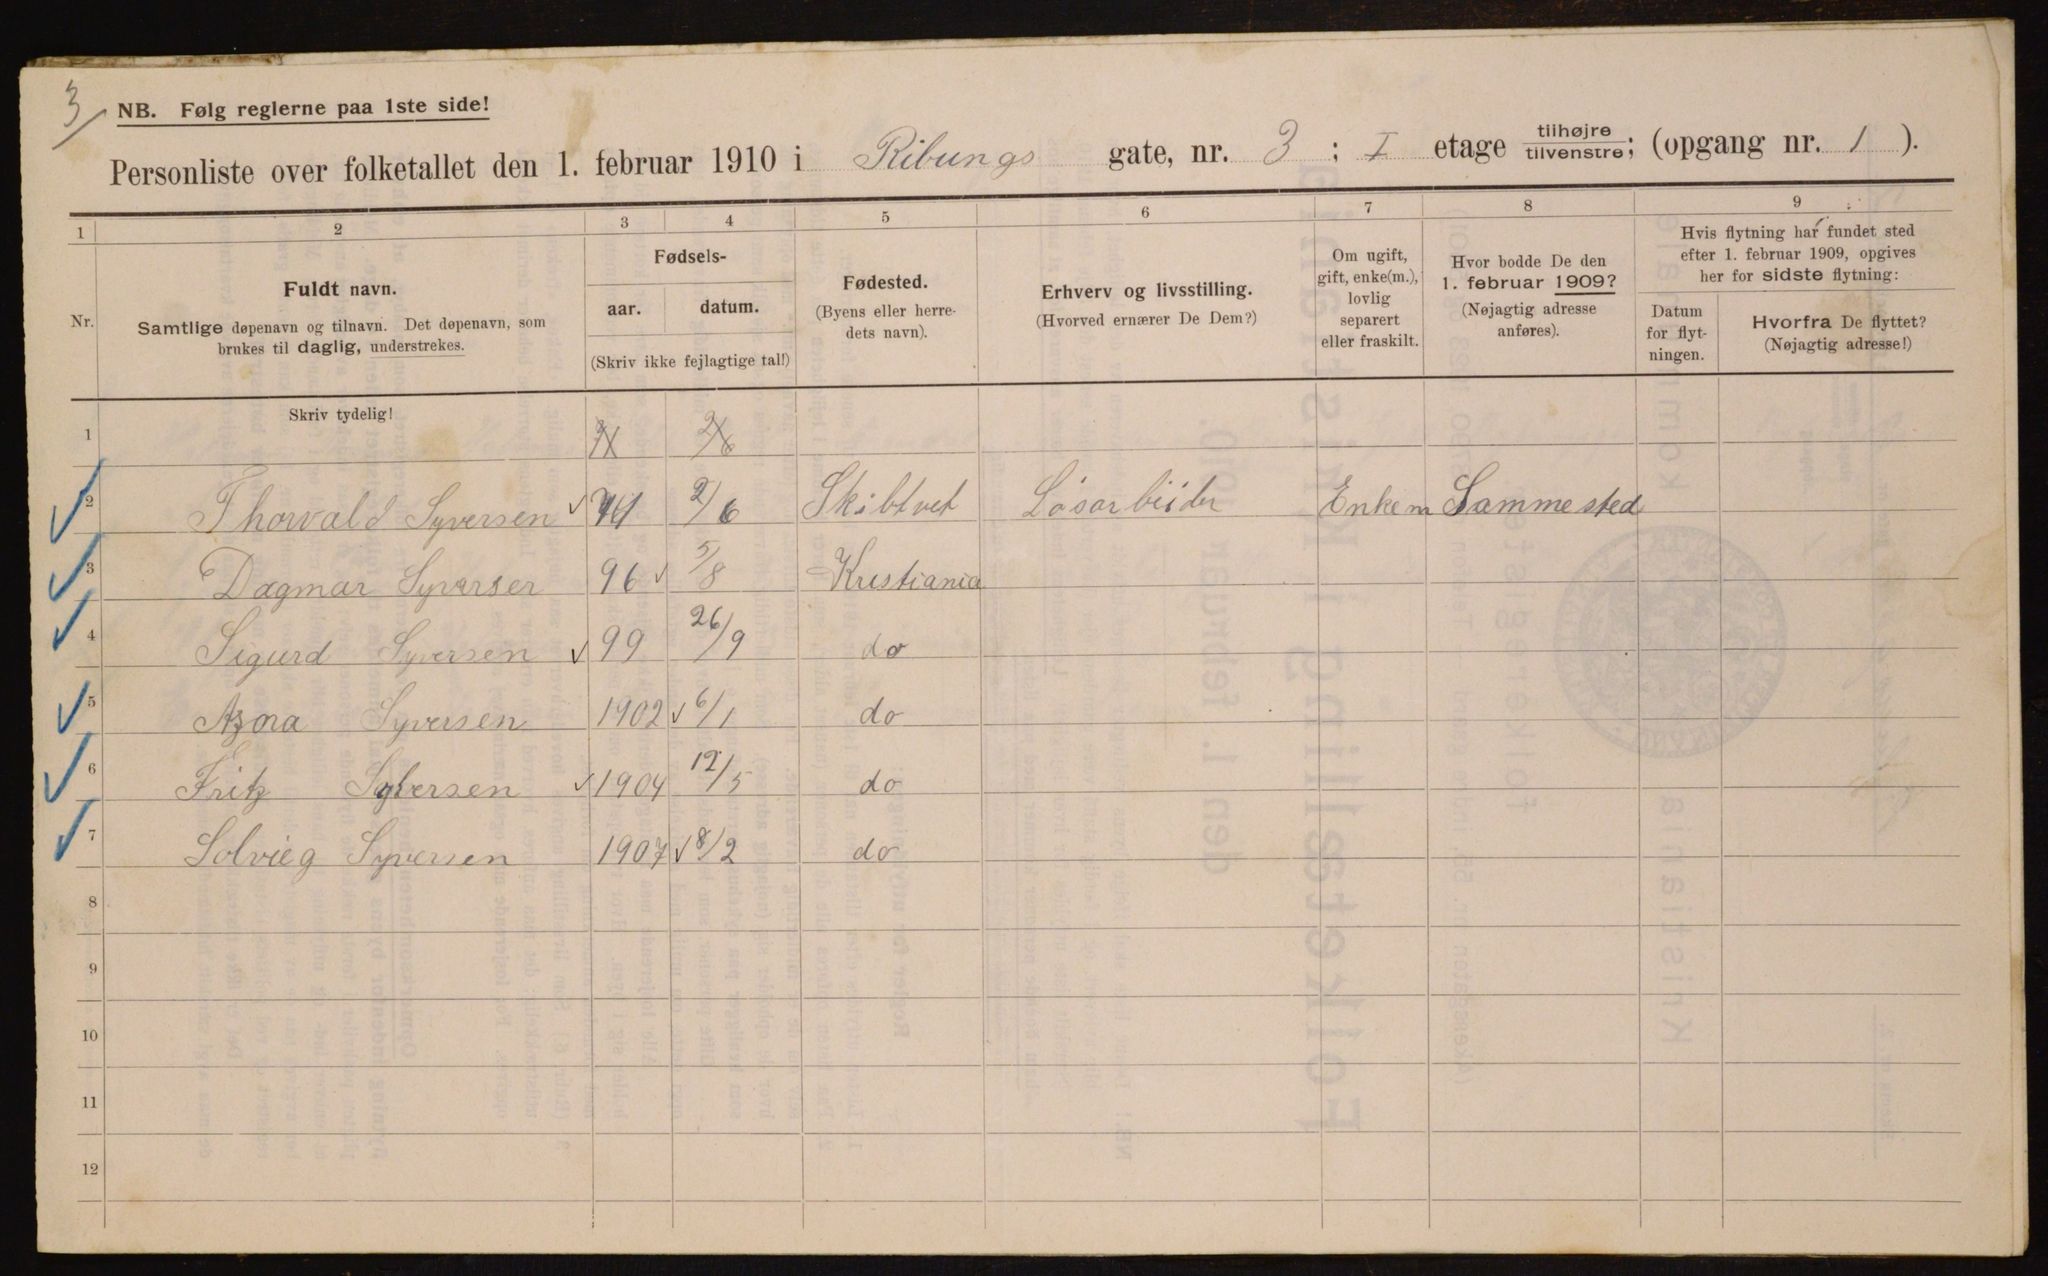 3
NB. Følg reglerne paa 1ste side!
Personliste over folketallet den 1. februar 1910 i Ribungs gate, nr. 3 ; I etage tilhøjre/tilvenstre; (opgang nr. 1 ).
1 2 3 4 5 6 7 8 9
Nr.
Fuldt navn.
Samtlige døpenavn og tilnavn. Det døpenavn, som
brukes til daglig, understrekes.
Fødsels-
aar. datum.
(Skriv ikke fejlagtige tal!)
Fødested.
(Byens eller herre-
dets navn).
Erhverv og livsstilling.
(Hvorved ernærer De Dem?)
Om ugift,
gift, enke(m.),
lovlig
separert
eller fraskilt.
Hvor bodde De den
1. februar 1909?
(Nøjagtig adresse
anføres).
Hvis flytning har fundet sted
efter 1. februar 1909, opgives
her for sidste flytning:
Datum
for flyt-
ningen.
Hvorfra De flyttet?
(Nøjagtig adresse!)
Skriv tydelig!
1 2/6
2 Thorvald Syversen 2/6 Skibtvet Løsarbeider Enkem Sammested
3 Dagmar Syverser 96 5/8 Kristiania
4 Sigurd Syversen 99 26/9 do
5 Azora Syversen 1902 6/1 do
6 Fritz Syversen 1904 12/5 do
7 Solvieg Syversen 1907 8/2 do
8
9
10
11
12